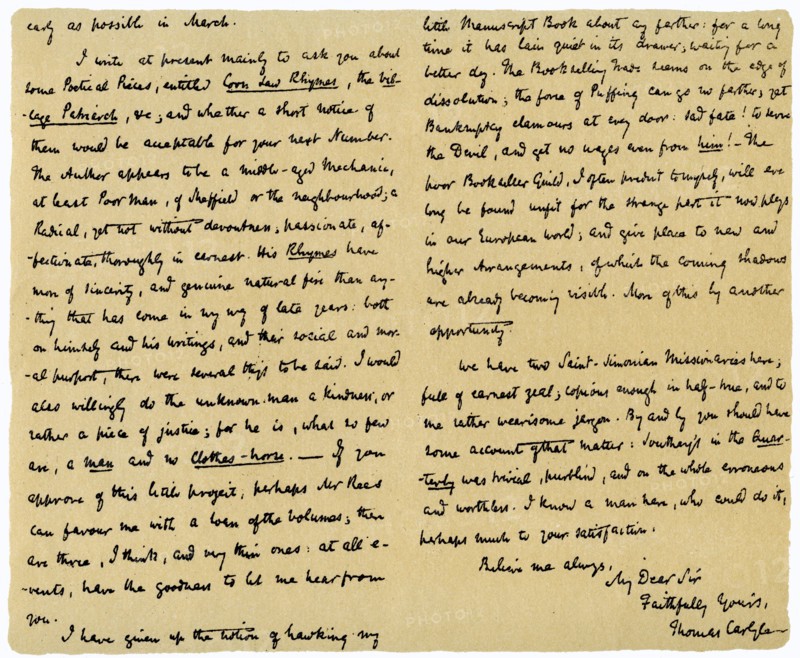 early as possible in March.
I write at present mainly to ask you about
some Poetical Pieces, entitled Corn Law Rhymes, the Vil-
-lage Patriarch, &c; and whether a short notice of
them would be acceptable for your next Number.
The Author appears to be a middle-aged Mechanic,
at least Poor Man, of Sheffield or the neighbourhood; a
Radical, yet not without devoutness; passionate, af-
-fectionate, thoroughly in earnest. His Rhymes have
more of sincerity, and genuine natural fire than any-
-thing that has come in my way of late years: both
on himself and his writings, and their social and mor-
-al purport, there were several things to be said. I would
also willingly do the unknown man a kindness, or
rather a piece of justice; for he is, what so few
are, a man and no Clothes-horse. — If you
approve of this little project, perhaps Mr Rees
can favour me with a loan of the volumes; there
are three, I think, and very thin ones: at all e-
-vents, have the goodness to let me hear from
you.
I have given up the notion of hawking my
little Manuscript Book about any farther: for a long
time it has lain quiet in its drawer, waiting for a
better day. The Bookselling Trade seems on the edge of
dissolution; the force of Puffing can go no farther; yet
Bankruptcy clamours at every door: sad fate! to serve
the Devil, and get no wages even from him! — The
poor Bookseller Guild, I often predict to myself, will ere
long be found unfit for the strange part it now plays
in our European world; and give place to new and
higher Arrangements, of which the coming shadows
are already becoming visible. More of this by another
opportunity.
We have two Saint-Simonian Missionaries here;
full of earnest zeal; copious enough in half-true, and to
me rather wearisome jargon. By and by you should have
some account of that matter: Southey's in the Quar-
-terly was trivial, purblind, and on the whole erroneous
and worthless. I know a man here, who could do it,
perhaps much to your satisfaction.
Believe me always,
My Dear Sir
Faithfully Yours,
Thomas Carlyle